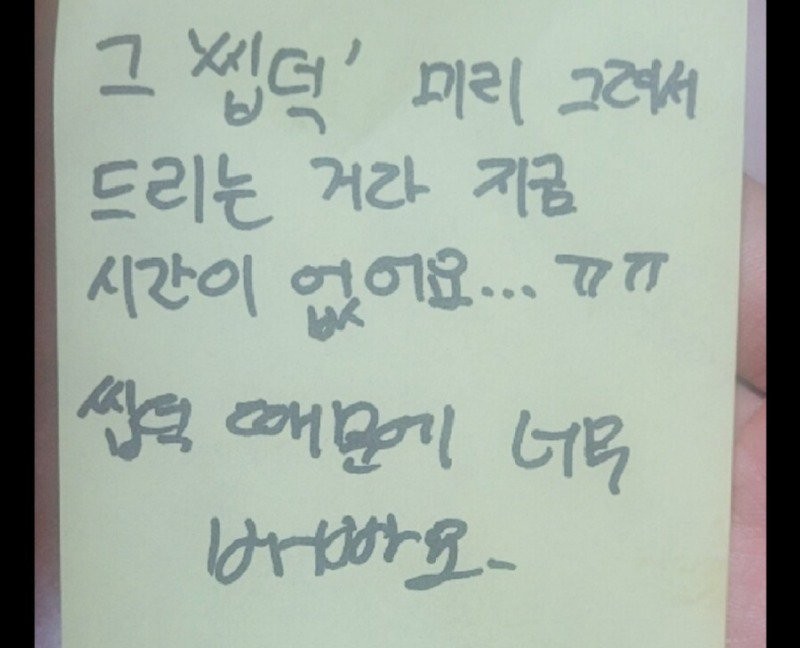 그 '씹덕' 미리 그려서
드리는 거라 지금
시간이 없어요... ㅠㅠ
씹덕 때문에 너무
바빠요.